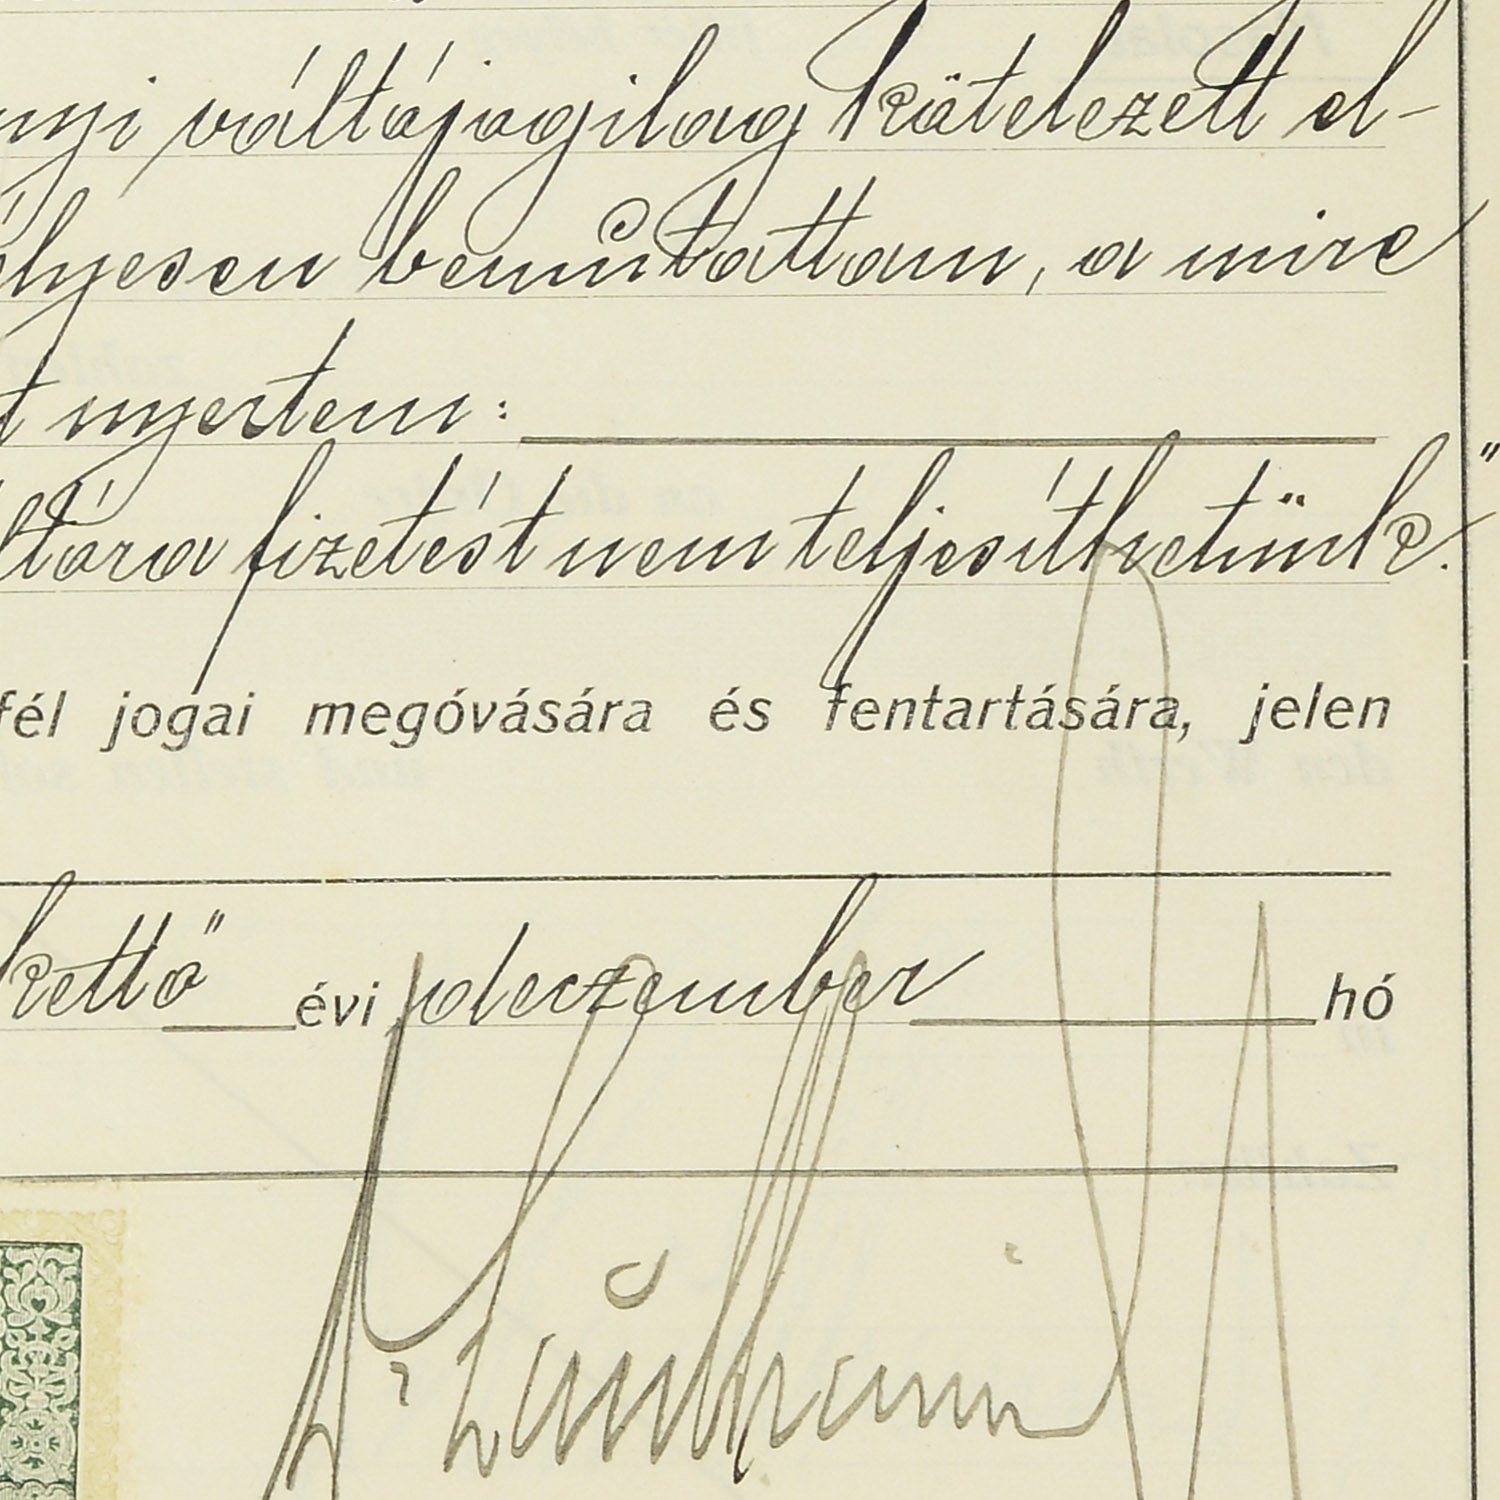 nyi váltójogilag kötelezett el-
élyesen bemutattam, a mire
t nyertem:
ltóra fizetést nem teljesíthetünk."
fél jogai megóvására és fentartására, jelen
kettő" évi deczember hó